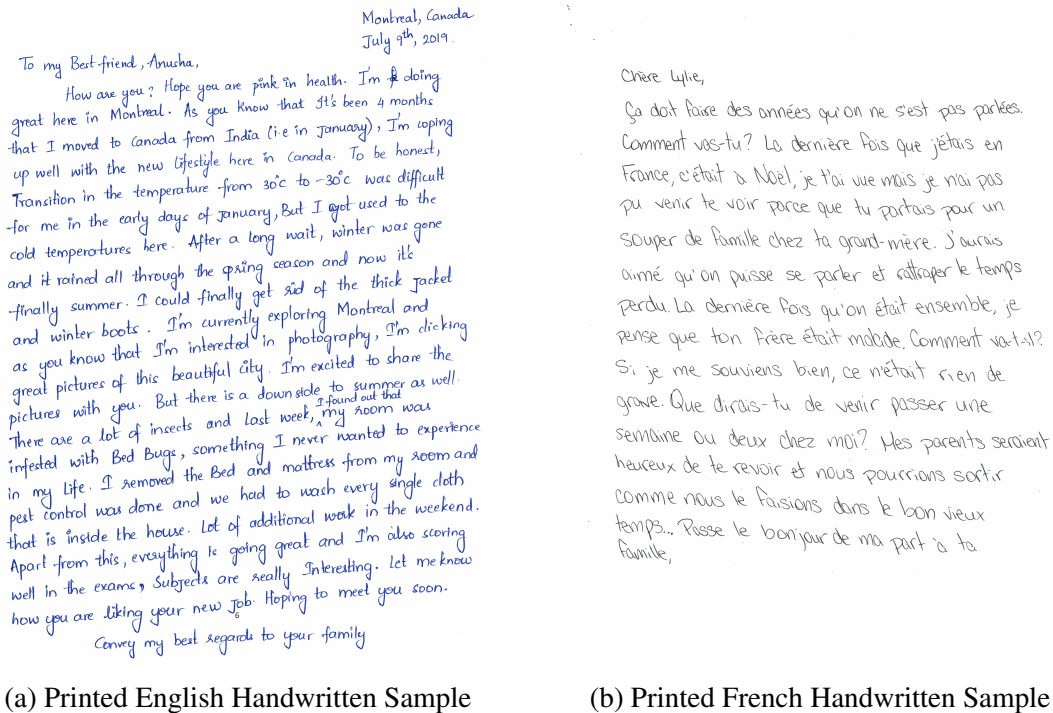 Montreal, Canada
July 9th, 2019.
To my Best friend, Anusha,
How are you? Hope you are pink in health. I'm doing
great here in Montreal. As you know that It's been 4 months
that I moved to Canada from India (i.e in January), I'm coping
up well with the new lifestyle here in Canada. To be honest,
Transition in the temperature from 30°c to -30°c was difficult
for me in the early days of January, But I got used to the
cold temperatures here. After a long wait, winter was gone
and it rained all through the spring season and now it's
finally summer. I could finally get rid of the thick Jacket
and winter boots. I'm currently exploring Montreal and
as you know that I'm interested in photography, I'm clicking
great pictures of this beautiful city. I'm excited to share the
pictures with you. But there is a downside to summer as well.
There are a lot of insects and Last week, I found out that my room was
infested with Bed Bugs, something I never wanted to experience
in my Life. I removed the Bed and mattress from my room and
pest control was done and we had to wash every single cloth
that is inside the house. Lot of additional work in the weekend.
Apart from this, everything Is going great and I'm also scoring
well in the exams, Subjects are really Interesting. Let me know
how you are liking your new Job. Hoping to meet you soon.
6
Convey my best regards to your family
(a) Printed English Handwritten Sample
Chère Lylie,
Ça doit faire des années qu'on ne s'est pas parlées.
Comment vas-tu? La dernière fois que j'étais en
France, c'était à Noël, je t'ai vue mais je n'ai pas
pu venir te voir parce que tu partais pour un
souper de famille chez ta grand-mère. J'aurais
aimé qu'on puisse se parler et rattraper le temps
perdu. La dernière fois qu'on était ensemble, je
pense que ton frère était malade. Comment va-t-il?
Si je me souviens bien, ce n'était rien de
grave. Que dirais-tu de venir passer une
semaine ou deux chez moi? Mes parents seraient
heureux de te revoir et nous pourrions sortir
comme nous le faisions dans le bon vieux
temps... Passe le bonjour de ma part à ta
famille,
(b) Printed French Handwritten Sample